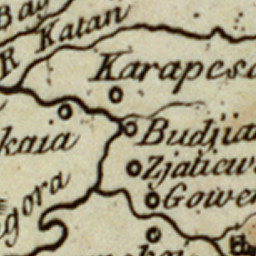 Bay
R Katan
Karapes
kaia
Budjia
Zjaticw
Gower
gora